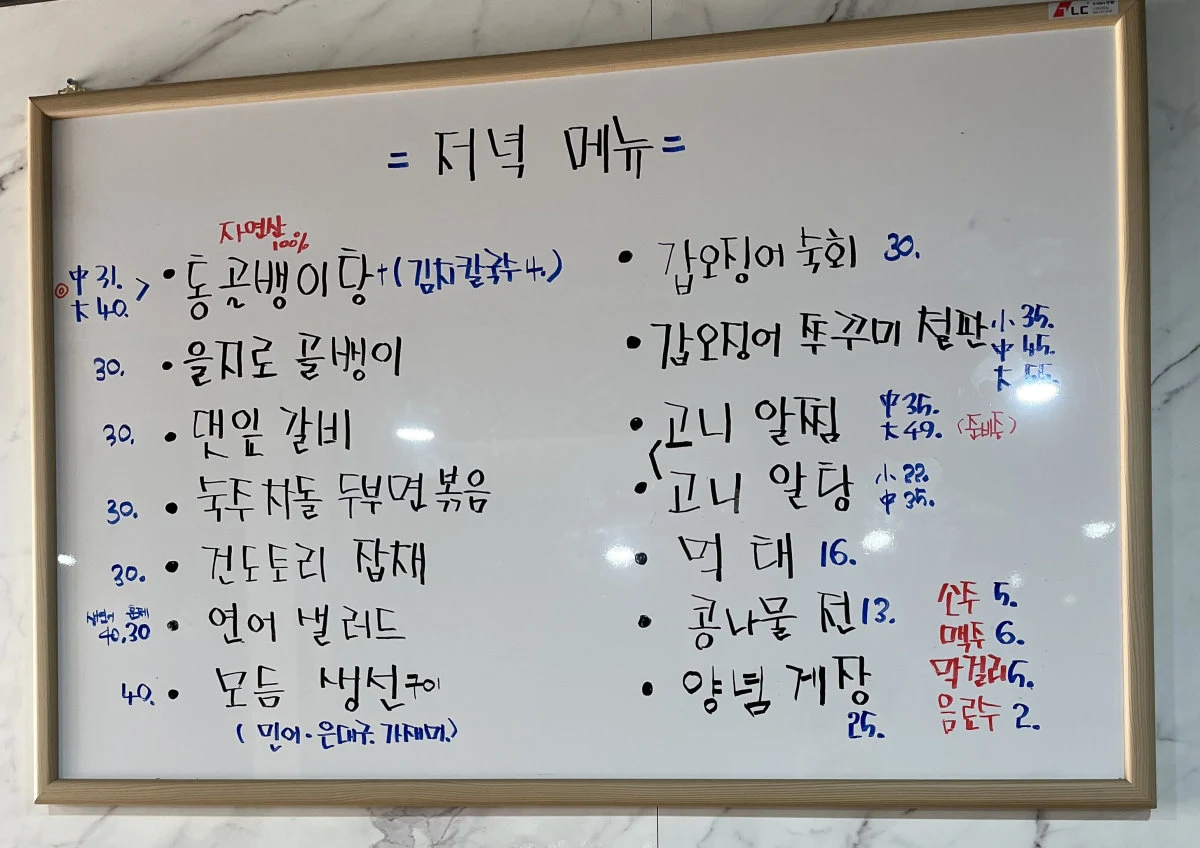 = 저녁 메뉴 =
자연산 100%
◎ 中 31. 大 40. > • 통골뱅이탕 + (김치칼국수 4.)
30. • 을지로 골뱅이
30. • 댓잎 갈비
30. • 숙주차돌 두부면볶음
30. • 건도토리 잡채
40,30 • 연어 샐러드
40. • 모듬 생선구이
(민어·은대구·가재미.)
• 갑오징어 숙회 30.
• 갑오징어 쭈꾸미 철판 小 35. 中 45. 大 55.
• 고니 알찜 中 35. 大 49. (준비중)
• 고니 알탕 小 22. 中 35.
• 먹태 16.
• 콩나물 전 13.
• 양념 게장 25.
소주 5.
맥주 6.
막걸리 5.
음료수 2.